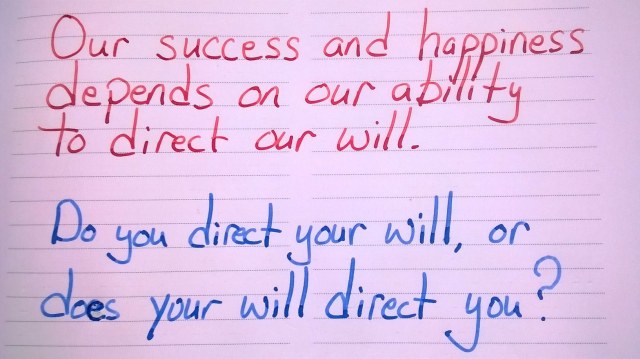 Our success and happiness
depends on our ability
to direct our will.
Do you direct your will, or
does your will direct you?